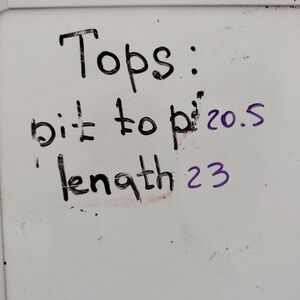 Tops:
pit to pi 20.5
length 23